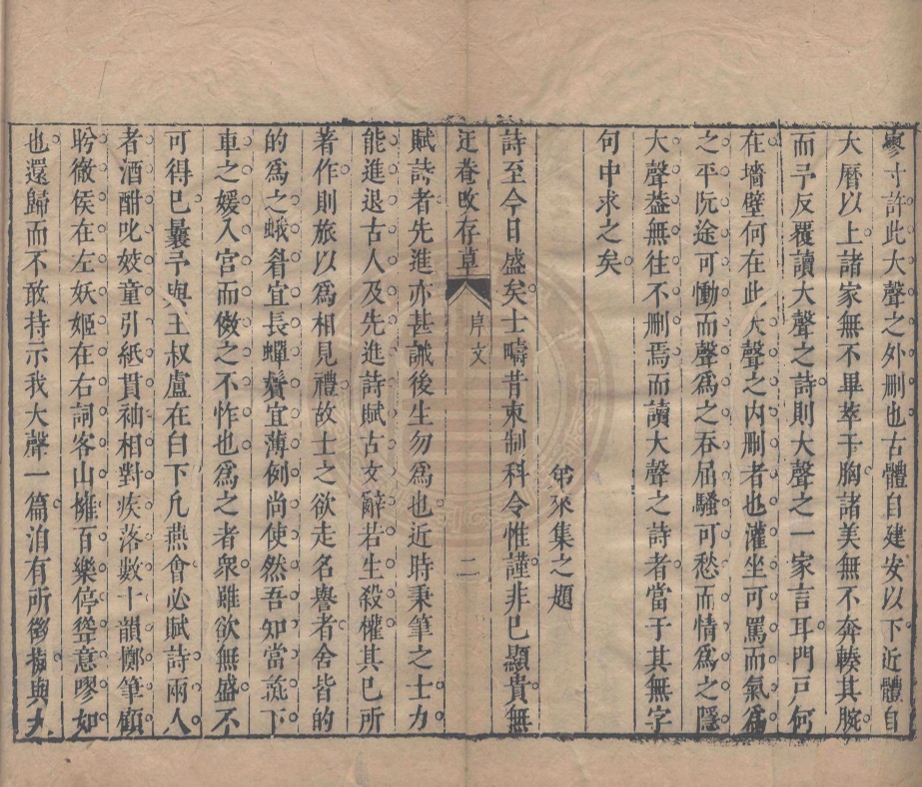 寥寸許此大聲之外刪也古體自建安以下近體自
大曆以上諸家無不畢萃于胸諸美無不奔輳其腕
而予反覆讀大聲之詩則大聲之一家言耳門戶何
在墻壁何在此大聲之內刪者也灌坐可罵而氣為
之平阮途可慟而聲為之吞屈騷可愁而情為之隱
大聲葢無往不刪焉而讀大聲之詩者當于其無字
句中求之矣
弟來集之題
迂菴改存草
序文
二
詩至今日盛矣士疇昔束制科令惟謹非已顯貴無
賦詩者先進亦甚誡後生勿為也近時秉筆之士力
能進退古人及先進詩賦古文辭若生殺權其已所
著作則旅以為相見禮故士之欲走名譽者舍皆的
的為之蛾眉宜長蟬鬢宜薄例尚使然吾知當流下
車之媛入宮而傚之不怍也為之者衆雖欲無盛不
可得已曩予與王叔盧在白下凡燕會必賦詩兩人
者酒酣叱妓童引紙貫袖相對疾落數十韻擲筆顧
盻徹侯在左妖姬在右詞客山擁百樂停聲意嘐如
也還歸而不敢持示我大聲一篇洎有所徵擬與大